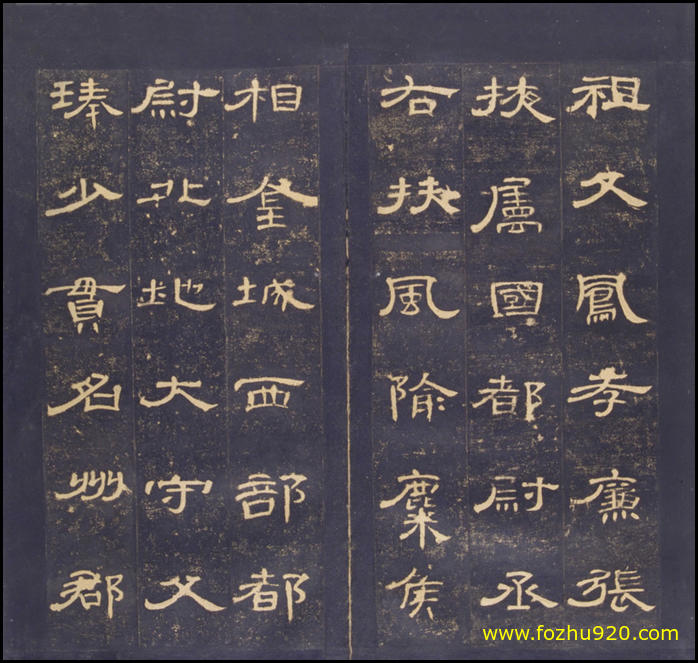 祖父鳳孝廉張
掖屬國都尉丞
右扶風隃麋侯
相金城西部都
尉北地大守父
琫少貫名州郡
www.fozhu920.com